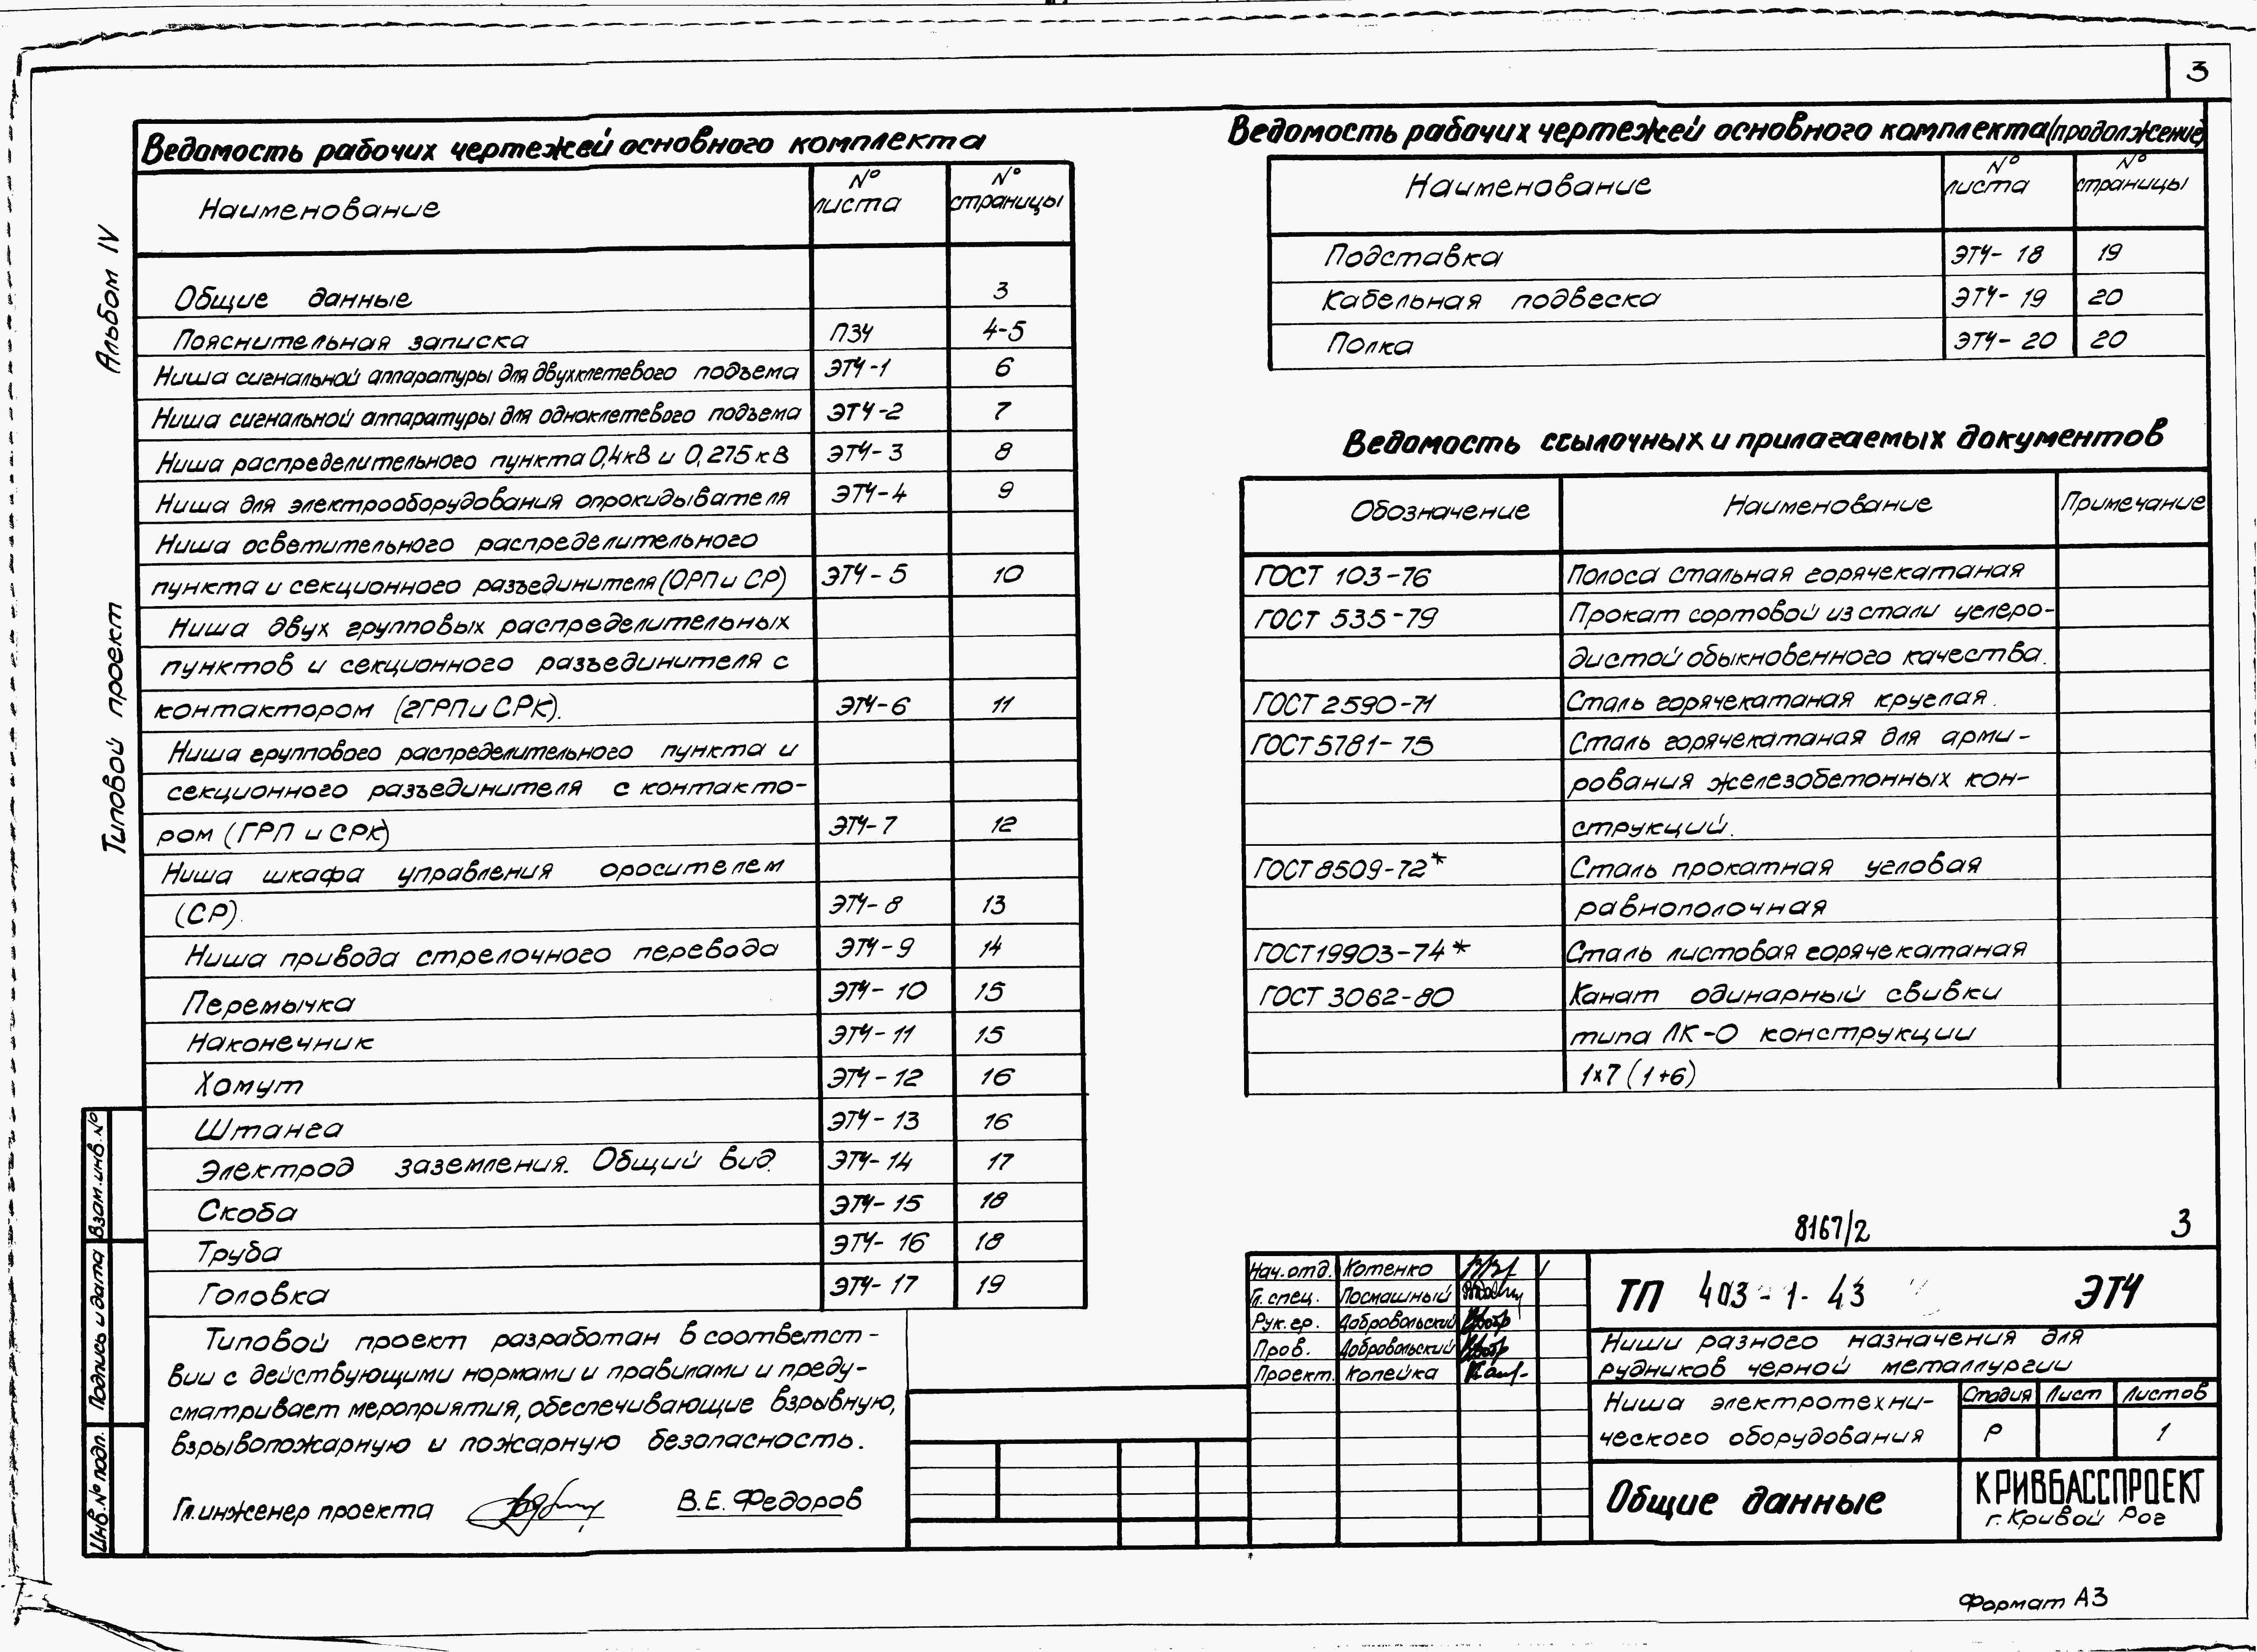 3
Альбом IV
Типовой проект
Ведомость рабочих чертежей основного комплекта
Наименование № листа № страницы
Общие данные 3
Пояснительная записка ПЗЧ 4-5
Ниша сигнальной аппаратуры для двухклетевого подъема ЭТЧ-1 6
Ниша сигнальной аппаратуры для одноклетевого подъема ЭТЧ-2 7
Ниша распределительного пункта 0,4кВ и 0,275кВ ЭТЧ-3 8
Ниша для электрооборудования опрокидывателя ЭТЧ-4 9
Ниша осветительного распределительного
пункта и секционного разъединителя (ОРП и СР) ЭТЧ-5 10
Ниша двух групповых распределительных
пунктов и секционного разъединителя с
контактором (2ГРП и СРК). ЭТЧ-6 11
Ниша группового распределительного пункта и
секционного разъединителя с контакто-
ром (ГРП и СРК) ЭТЧ-7 12
Ниша шкафа управления оросителем
(СР). ЭТЧ-8 13
Ниша привода стрелочного перевода ЭТЧ-9 14
Перемычка ЭТЧ-10 15
Наконечник ЭТЧ-11 15
Хомут ЭТЧ-12 16
Штанга ЭТЧ-13 16
Электрод заземления. Общий вид. ЭТЧ-14 17
Скоба ЭТЧ-15 18
Труба ЭТЧ-16 18
Головка ЭТЧ-17 19
Типовой проект разработан в соответст-
вии с действующими нормами и правилами и преду-
сматривает мероприятия, обеспечивающие взрывную,
взрывопожарную и пожарную безопасность.
Гл.инженер проекта В.Е.Федоров
Взам.инв.№
Подпись и дата
Инв.№ подл.
Ведомость рабочих чертежей основного комплекта(продолжение)
Наименование № листа № страницы
Подставка ЭТЧ-18 19
Кабельная подвеска ЭТЧ-19 20
Полка ЭТЧ-20 20
Ведомость ссылочных и прилагаемых документов
Обозначение Наименование Примечание
ГОСТ 103-76 Полоса стальная горячекатаная
ГОСТ 535-79 Прокат сортовой из стали углеро-
дистой обыкновенного качества.
ГОСТ 2590-71 Сталь горячекатаная круглая.
ГОСТ 5781-75 Сталь горячекатаная для арми-
рования железобетонных кон-
струкций.
ГОСТ 8509-72* Сталь прокатная угловая
равнополочная
ГОСТ 19903-74* Сталь листовая горячекатаная
ГОСТ 3062-80 Канат одинарный свивки
типа ЛК-О конструкции
1×7 (1+6)
8167/2 3
Нач.отд. Котенко
Гл.спец. Посмашный
Рук.гр. Добровольский
Пров. Добровольский
Проект. Копейка
ТП 403-1-43 ЭТЧ
Ниши разного назначения для
рудников черной металлургии
Ниша электротехни-
ческого оборудования
Стадия Лист Листов
Р 1
Общие данные
КРИВБАССПРОЕКТ
г.Кривой Рог
Формат А3